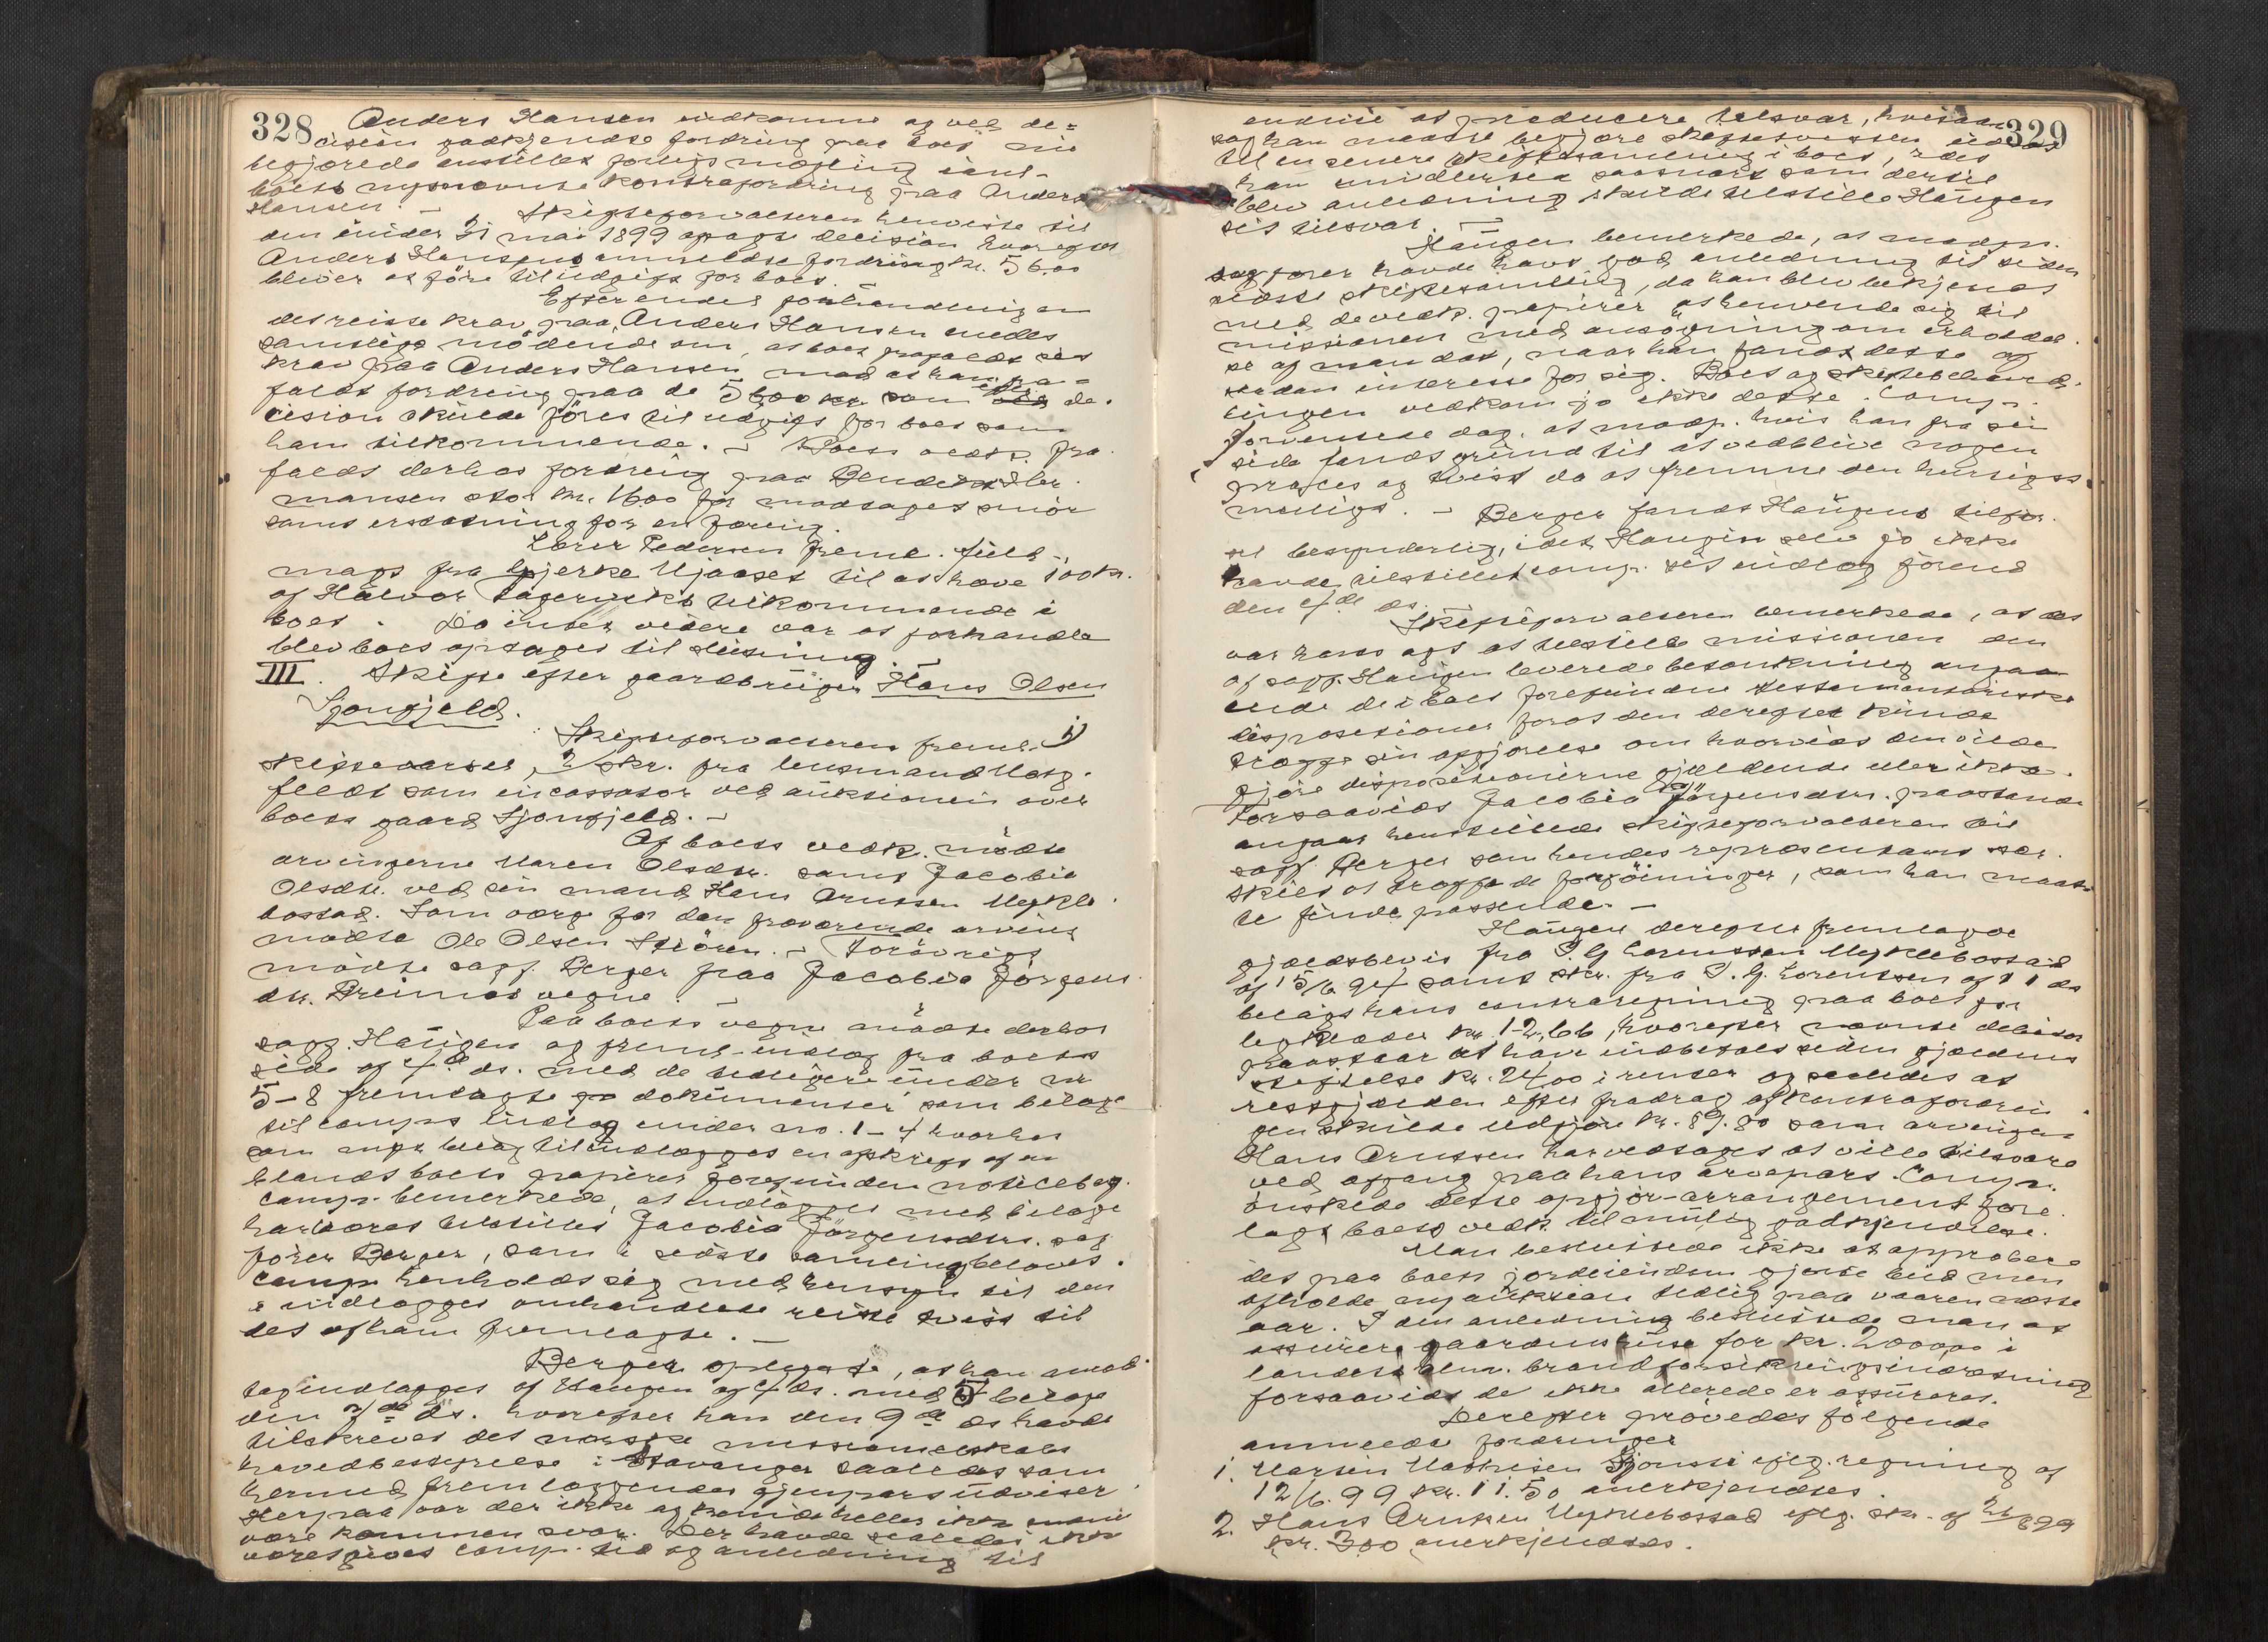 328
Anders Hansen indkomne og ved de=
cision godkjendte fordring paa boet nu
begjærede anstillet forligsmægling iaml.
boets nysnævnte kontrafordring paa Anders
Hansen. –
Skifteforvalteren henviste til
den under 31 mai 1899 afsagte decision hvorefter
Anders Hansens anmeldte fordring kr. 56.00
bliver at føre til udgift for boet.
Efter endel forhandling an
det reiste krav paa Anders Hansen enedes
samtlige mødende om, at boet frafaldt sit
krav paa Anders Hansen mod at han fra=
faldt fordring paa de 56.00 kr. som efter de.
cision skulde føres til udgift for boet som
ham tilkommende. – Boets vedk. fra
faldt derhos fordring paa Bendix Her
mansen stor kr. 16.00 for modtaget smør
samt erstatning for en færing.
Lærer Pedersen freml. fuld-
magt fra Bjerke Mjaaset til at hæve 100 kr.
af Halvor tilkommende i
boet. Da intet videre var at forhandle
blev boet optaget til slutning. –
III. Skifte efter gaardbruger Hans Olsen
Sjonfjeld.
Skifteforvalteren freml. 1)
skiftevarsel, 2) skr. fra lensmand
feldt som incassator ved auktionen over
boets gaard Sjonfjeld. –
Af boets vedk. mødte
arvingerne Maren Olsdtr. samt Jacobia
Olsdtr. ved sin mand Hans Arntsen Myklе
bostad. Som værge for den fraværende arving
mødte Ole Olsen Støren. – Forøvrigt
mødte sagf. Berger paa Jacobia Jørgens
dtr. Breimos vegne. –
Paa boets vegne mødte derhos
sagf. Haugen og freml. indlæg fra boets
side af 4de ds. med de tidligere under nr
5–8 fremlagte dokumenter som bilage
til comp.s indlæg under no. 1–4 hvorhos
som nyt bilag til indlægget en afskrift af en
blandt boets papirer forefunden notitsebog.
Comp. bemerkede, at indlægget med bilage
har været tilstillet Jacobia Jørgensdtr. sag
fører Berger, som i sidste samling belovet.
Comp. henholdt sig med hensyn til den
i indlægget omhandlede reiste tvist til
det af ham fremlagte. –
Berger oplyste, at han mod
tog indlægget af Haugen af 4 ds. med 5 bilage
den 7de ds. hvorefter han den 9de ds havde
tilskrevet det norske missionsselskabs
hovedbestyrelse i Stavanger saaledes som
hermed fremlæggendes gjenpart udviser.
Herpaa var der ikke og kunde heller ikke
være kommen svar. Der havde saaledes ikke
været givet comp. tid og anledning til
329
endnu at producere tilsvar, hvisaar
sag han maatte begjære skiftetvisten udsat
til en senere skiftesamling i boet, idet
han imidlertid saasnart som dertil
blev anledning skulde tilstille Haugen
sit tilsvar. –
Haugen bemerkede, at modp.
sagfører havde havt god anledning til siden
sidste skiftesamling, da han blev bekjendt
med de vedk. papirer at henvende sig til
missionen med ansøgning om erholdel
se af mandat, naar han fandt dette af
sædan interesse for sig. Boet og skiftebehand.
lingen vedkom jo ikke dette. Comp.
forventede dog. at modp. hvis han fra sin
side fandt grund til at vedblive nogen
proces og tvist da at fremme den hurtigst
muligt. – Berger fandt Haugens tilfør.
sel besynderlig, idet Haugen selv jo ikke
havde tilstillet comp. sit indlæg førend
den 7de ds.
Skifteforvalteren bemerkede, at det
var hans agt at tilstille missionen den
af sagf. Haugen leverede betænkning angaa
ende de i boet forefundne testamentariske
dispositioner forat den derefter kunde
træffe sin afgjørelse om hvorvidt den vilde
gjøre dispositionerne gjældende eller ikke.
Forsaavidt Jacobia Jørgensdtr. paastand
angaar henstillede skifteforvalteren til
sagf. Berger som hendes representant sær.
skilt at træffe de forføininger, som han maat
te finde passende. –
Haugen derefter fremlagde
gjældsbevis fra P. G. Lorentsen Myklebostad
af 15/6 94 samt skr. fra P. G. Lorentsen af 11 ds
bilagt hans contraregning paa boet for
kr. 12.66, hvorefter nævnte debitor
paastaar at have indbetalt siden gjældens
stiftelse kr. 24.00 i renter og saaledes at
restgjælden efter fradrag af kontrafordrin
gen skulde udgjøre kr. 89.80 som arvingen
Hans Arntsen har vedtaget at ville tilsvare
ved afgang paa hans arvepart. Comp.
ønskede dette opgjør-arrangement fore
lagt boets vedk. til mulig godkjendelse.
Man besluttede ikke at approbere
det paa boets jordeiendom gjorte bud men
afholde ny auktion tidlig paa vaaren næste
aar. I den anledning besluttede man at
assurere gaardens huse for kr. 2000.00 i
landets alm. brandforsikringsindretning
forsaavidt de ikke allerede er assureret.
Derefter prøvedes følgende
anmeldte fordringer
1. Martin Mathisen iflg. regning af
12/6. 99 kr. 11.50 anerkjendtes.
2. Hans Arntsen Myklebostad iflg. skr. af 899
kr. 3.00 anerkjendtes.